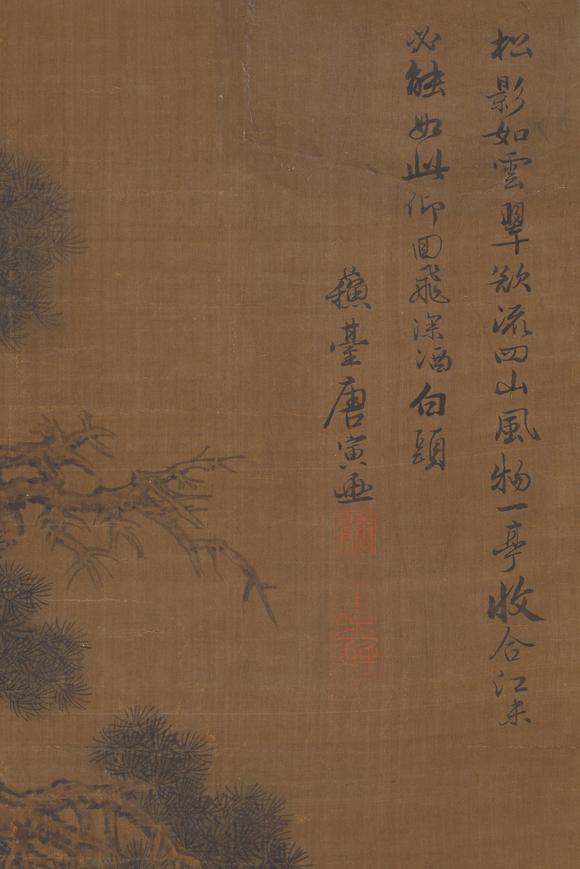 松影如雲翠欲流四山風物一亭收合江未
必能如此仰回飛深酒白頭
蘓臺唐寅画